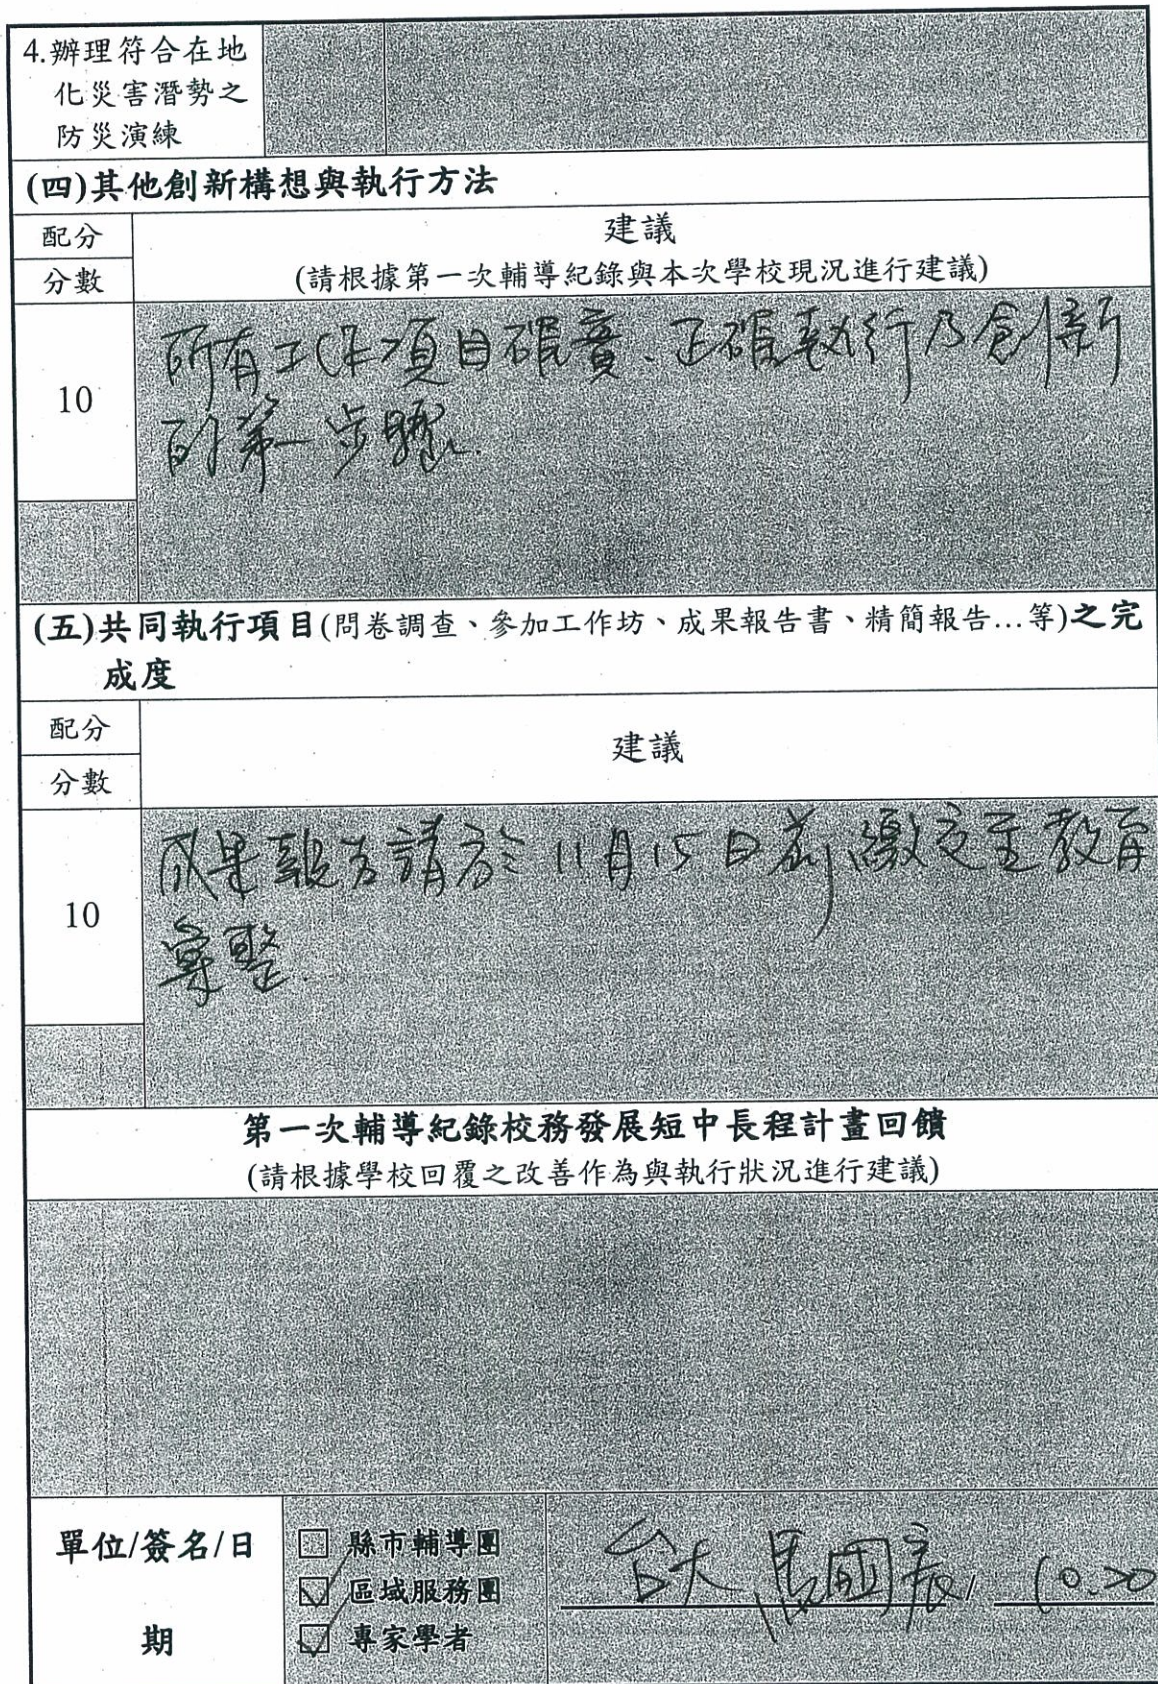 4.辦理符合在地
化災害潛勢之
防災演練
(四)其他創新構想與執行方法
配分
分數
建議
(請根據第一次輔導紀錄與本次學校現況進行建議)
10
所有工作項目確實、正確執行乃創新
的第一步驟.
(五)共同執行項目(問卷調查、參加工作坊、成果報告書、精簡報告…等)之完
成度
配分
分數
建議
10
成果報告請於11月15日前繳交至教育
彙整.
第一次輔導紀錄校務發展短中長程計畫回饋
(請根據學校回覆之改善作為與執行狀況進行建議)
單位/簽名/日
期
縣市輔導團
區域服務團
專家學者
台大 馬國宸/ 10.20